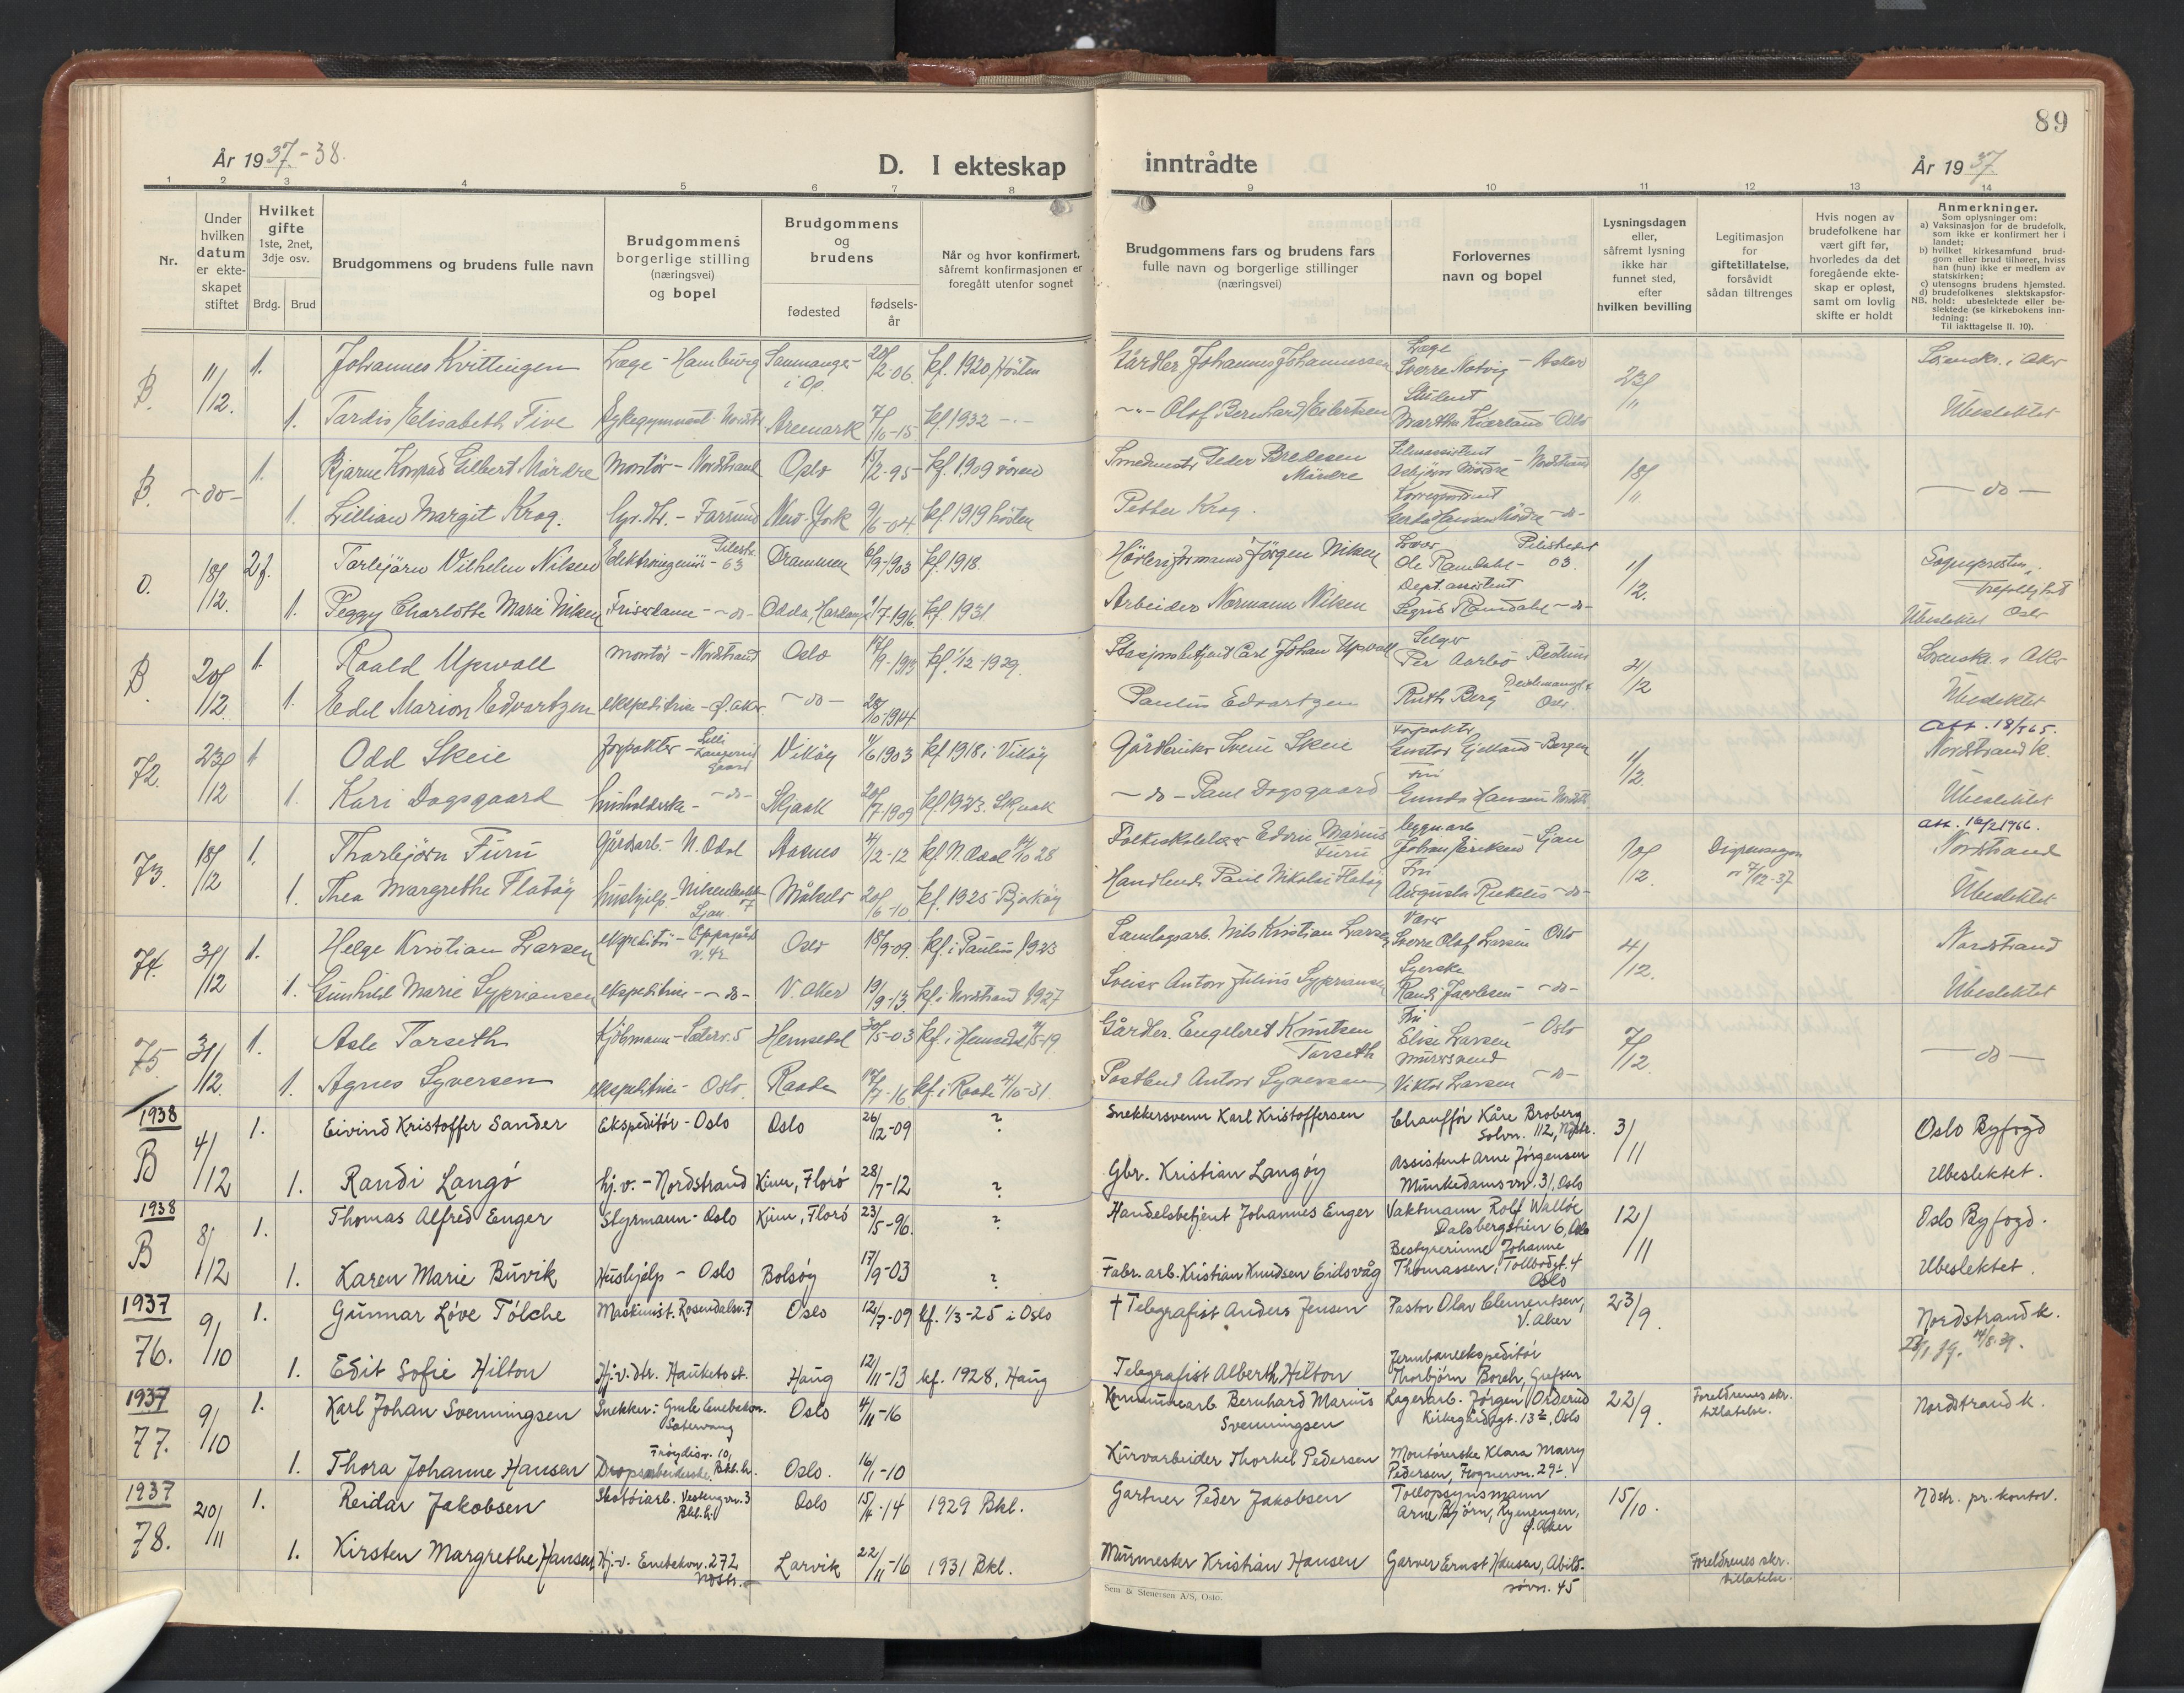 89
År 1937-38.
D. I ekteskap
inntrådte
År 1937.
1 2 3 4 5 6 7 8 9 10 11 12 13 14
Nr.
Under hvilken datum er ekte-skapet stiftet
Hvilket gifte
1ste, 2net, 3dje osv.
Brdg. Brud
Brudgommens og brudens fulle navn
Brudgommens borgerlige stilling (næringsvei) og bopel
Brudgommens og brudens
fødested
fødsels-år
Når og hvor konfirmert, såfremt konfirmasjonen er foregått utenfor sognet
Brudgommens fars og brudens fars
fulle navn og borgerlige stillinger
(næringsvei)
Forlovernes
navn og bopel
Lysningsdagen eller, såfremt lysning ikke har funnet sted, efter hvilken bevilling
Legitimasjon for giftetillatelse, forsåvidt sådan tiltrenges
Hvis nogen av brudefolkene har vært gift før, hvorledes da det foregående ekte-skap er opløst, samt om lovlig skifte er holdt
Anmerkninger.
Som oplysninger om:
a) Vaksinasjon for de brudefolk, som ikke er konfirmert her i landet;
b) hvilket kirkesamfund brud-gom eller brud tilhører, hviss han (hun) ikke er medlem av statskirken;
c) utensogns brudens hjemsted.
d) brudefolkenes slektskapsfor-hold: ubeslektede eller be-slektede (se kirkebokens inn-ledning:
NB. Til iakttagelse II. 10).
B. 11/12. 1. Johannes Kvittingen Læge - Hamburg Samnanger i Op. 2-06. kf. 1920, Hösten Gårdbr. Johannes Johannessen Læge Sverre Natvig - Asker 23/11 Sorenskr. i Aker
1. Tordis Elisabeth Five Sykegymnast Aremark 7/10-15 kf. 1932 Olaf Bernhard Eilertsen Student Martha Kierland Oslo Ubeslektet
B. -do- 1. Bjarne Konrad Gilbert Mördre Montör - Nordstrand Oslo 2-95 kf. 1909 våren Smedmester Peder Bredesen Mördre Filmassistent Asbjörn Mördre - Nordstrand 18/11 -do-
1. Lillian Margit Krog. - Farsund New-York 9/6-04 kf 1919 hösten Petter Krog. Korrespondent -do-
O. 18/12. 2g. Torbjörn Vilhelm Nilsen Elektroingeniör - Pilestr. 63 Drammen 6/9-1903 kf. 1918. Jörgen Nilsen Ole Ramdahl - Pilestredet 63. 1/12. Sognepresten, Trefoldighet Oslo
1. Peggy Charlotte Marie Nilsen Friserdame - -do- Odda, Hardanger 1/7-1916 kf. 1931. Arbeider Normann Nilsen Dept. assistent Sigrid Ramdahl -do- Ubeslektet
B. 20/12. 1. Roald Upwall Montör - Nordstrand Oslo 17/9-1913 kf. 1/12-1929. Stasjonsbetjent Carl Johan Upwall Selger Per Aarbo Bestum 2/12 Sorenskr. i Aker
1. Edel Marion Edvartzen ekspeditrise - Ö. Aker -do- 28/10-1914 Paulus Edvartzen Ruth Berg Deichmansgt. Oslo Ubeslektet
72. 23/12 1 Odd Skeie forpakter - Vikøy 4/6 1903 kf 1918 i Vikøy Gårdbruker Svein Skeie Forpakter Gustav Gjelland Bergen 11/12. Att. 18/5 65. Nordstrand k.
1. Kari Dagsgaard husholderske - -do- Skjaak 20/7-1909 kf 1923. Skjaak -do- Paul Dagsgaard Fru Gunda Hansen Ubeslektet
73. 18/12 1. Thorbjörn Furu Gårdsarb. - N. Odal Aasnes 4/2-12 kf N. Odal 28 Folkeskolelærer Edvin Marius Furu Bygn.arb Johan Eriksen Ljan 10/12. Dispensasjon 7/12-37 att. 16/2 1966. Nordstrand
1. Thea Margrethe Flatöy hushjelp Ljan Målselv 20/6-10 kf. 1925 Bjarköy Handlende Paul Nikolai Flatöy Fru Augusta -do- Ubeslektet
74. 31/12 1. Helge Kristian Larsen ekspeditör - Oppegård v. 42 Oslo 18/3-09. kf. i Paulus 1923 Samlagsarb. Nils Kristian Larsen Sverre Olaf Larsen Oslo 4/12. Nordstrand
1. Gunhild Marie Sypriansen ekspeditrise - -do- V. Aker 19/9-13 kf. i Nordstrand 1927 Sveiser Anton Julius Sypriansen Syerske Randi Jacobsen -do- Ubeslektet
75 31/12. 1. Asle Torseth Kjöbmann - Sæterv. 5 Hemsedal 30/5-03 kf. i Hemsedal 5-19. Gårdbr. Engebret Knutsen Torseth Fru Elise Larsen - Oslo 7/12. -do-
1. Agnes Syversen ekspeditrise - Oslo Raade 7-16 kf. i Raade 4/10-31. Postbud Anton Syversen Murersvend Viktor Larsen -do-
1938 B 4/12 1. Eivind Kristoffer Sander Ekspeditör - Oslo Oslo 26/12-09 ? Snekkersvenn Karl Kristoffersen Chauffør Kåre Broberg Solvn. 112, Ndstr. 3/11 Oslo Byfogd
1. Randi Langö hj.v. - Nordstrand Kinn, Florö 28/7-12 ? Gbr. Kristian Langöy Assistent Arne Jörgensen Munkedamsvn. 31, Oslo Ubeslektet.
1938 B 8/12 1. Thomas Alfred Enger Styrmann - Oslo Kinn, Florö 23/5-96. ? Handelsbetjent Johannes Enger Vaktmann Rolf Wallöe Dalsbergstien 6, Oslo 12/11 Oslo Byfogd.
1. Karen Marie Buvik Hushjelp - Oslo Bolsöy 17/9-03 ? Fabr. arb. Kristian Knudsen Eidsvåg Bestyrerinne Johanne Thomassen, Tollbodgt. 4 Oslo Ubeslektet.
1937 76. 9/10 1. Gunnar Löve Tölche Maskinist. Rosendalsv. 7 Oslo 12/7-09 kf. 1/3-25 i Oslo † Telegrafist Anders Jensen Pastor Olav Clementsen, V. Aker 23/9. Nordstrand k. 14/8.39.
1. Edit Sofie Hilton Hj.v. dtr. Hauketo st. Haug 12/11-13 kf. 1928, Haug Telegrafist Alberth Hilton Jernbaneekspeditör Thorbjörn Borch, Grefsen
1937 77. 9/10 1. Karl Johan Svenningsen Snekker: Gmle Enebakvn. Oslo 4/11-16 Kommunearb Bernhard Marius Svenningsen Lagerarb. Jörgen Orderud Kirkegårdsgt. 13, Oslo 22/9. Foreldrenes skr. tillatelse. Nordstrand k.
1. Thora Johanne Hansen Dropsarbeiderske. Fröydisv. 10, Bkl. h. Oslo. 16/1-10 Kurvarbeider Thorkel Pedersen Montörerske Klara Marry Pedersen, Frognervn. 29
1937 78. 20/11 1. Reidar Jakobsen Skotöiarb. Vestengvn. 3 Bkl. h. Oslo 15/4-14 1929 Bkl. Gartner Peder Jakobsen Tollopsynsmann Arne Björn, Ryenengen, Ö. Aker 15/10. Ndstr. pr. kontor.
1. Kirsten Margrethe Hansen Hj.v. Enebakvn. 272 Ndstr. Larvik 22/11-16 1931 Bkl. Murmester Kristian Hansen Garver Ernst Hansen, Abildsövn. 45 Foreldrenes skr. tillatelse.
Sem & Stenersen A/S, Oslo.